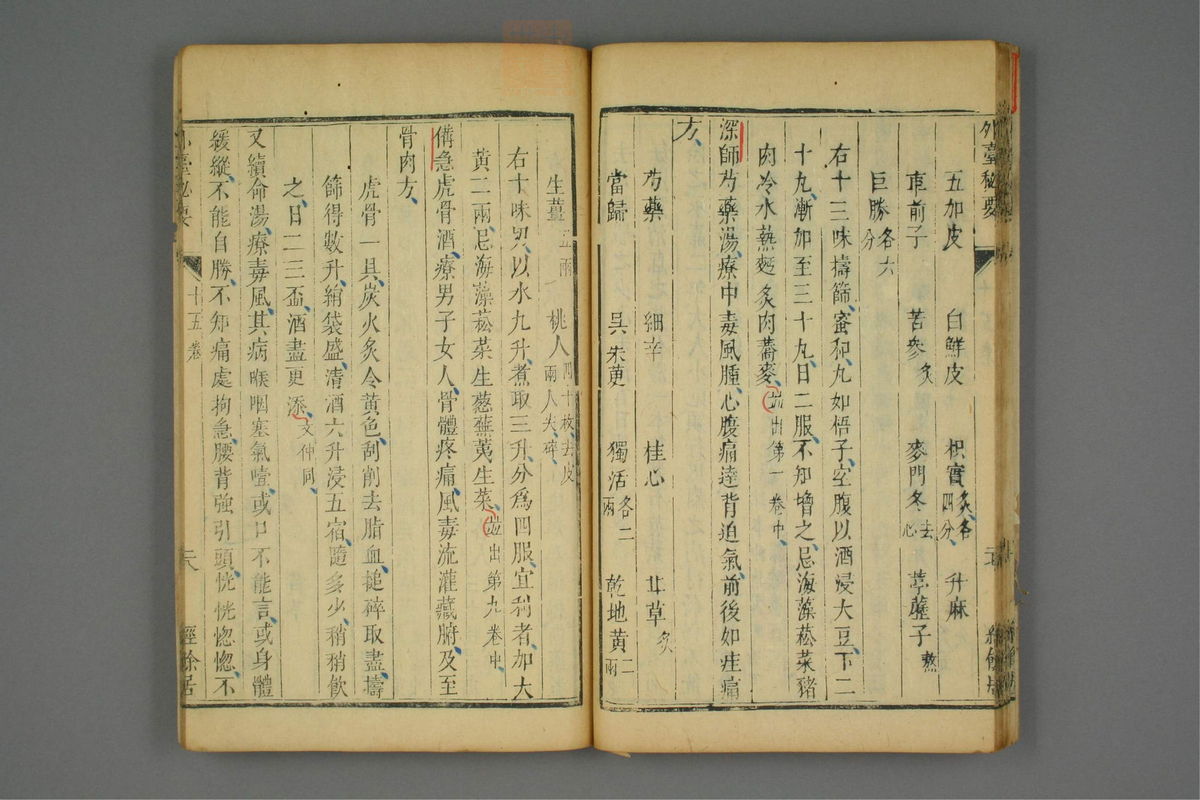 外臺秘要
五加皮 白鮮皮 枳實炙各四分 升麻
車前子 苦參炙 麥門冬去心 葶藶子熬
巨勝各六分
右十三味擣篩蜜和丸如梧子空腹以酒浸大豆下二
十丸漸加至三十丸日二服不知增之忌海藻菘菜豬
肉冷水熱麪炙肉蕎麥並出第一卷中
深師芍藥湯療中毒風腫心腹痛達背迫氣前後如疰痛
方
芍藥 細辛 桂心 甘草炙
當歸 吳茱萸 獨活各二兩 乾地黃二兩
生薑五兩 桃人四十枚去皮兩人尖碎
右十味㕮以水九升煮取三升分爲四服宜利者加大
黃二兩忌海藻菘菜生葱蕪荑生菜並出第九卷中
備急虎骨酒療男子女人骨體疼痛風毒流灌藏腑及至
骨肉方
虎骨一具炭火炙令黃色刮削去脂血搥碎取盡擣
篩得數升絹袋盛清酒六升浸五宿隨多少稍稍飲
之日二三盃酒盡更添文仲同
又續命湯療毒風其病喉咽塞氣噎或口不能言或身體
緩縱不能自勝不知痛處拘急腰背強引頭恍恍惚惚不
十五卷
經餘居